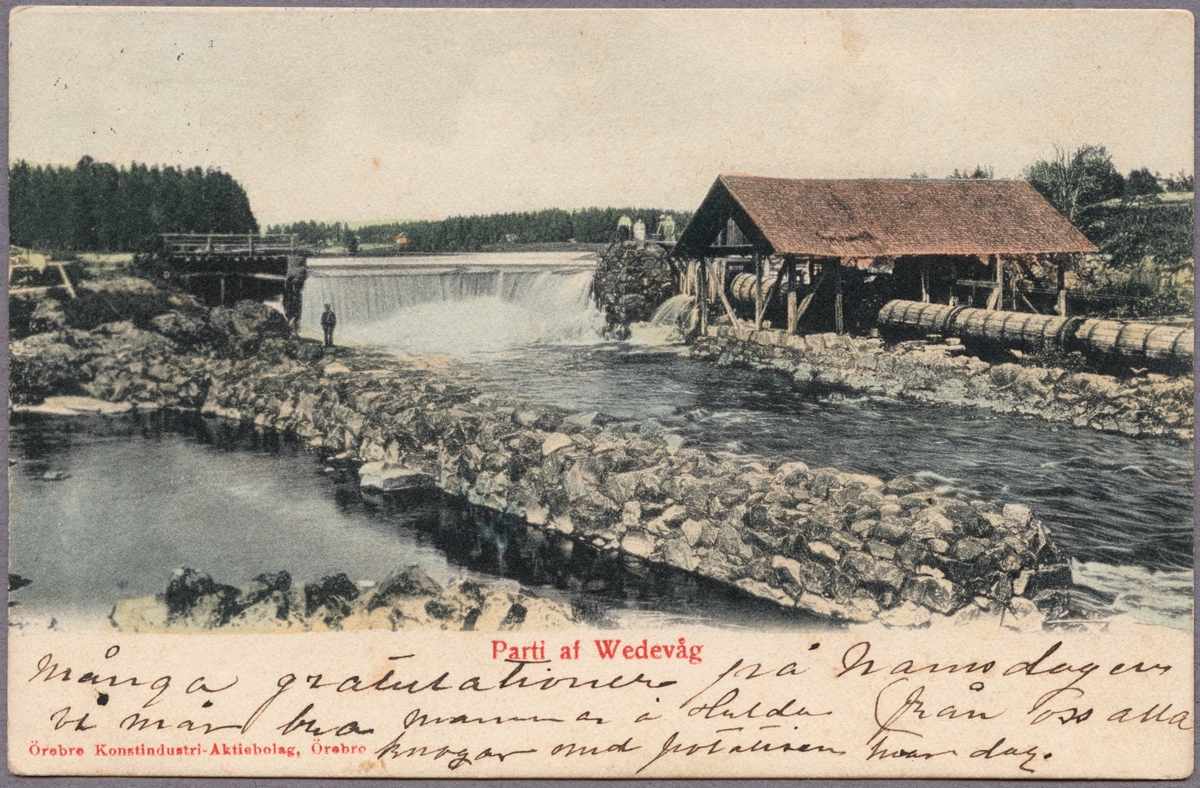 Parti af Wedevåg
Många gratulationer på namsdagen
vi mår bra mamma å Hulda (från oss alla
Örebro Konstindustri-Aktiebolag, Örebro
knogar med potatisen hvar dag.